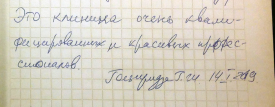 Это клиника очень квали-
фицированных и красивых профес-
сионалов.
Т.И. 14